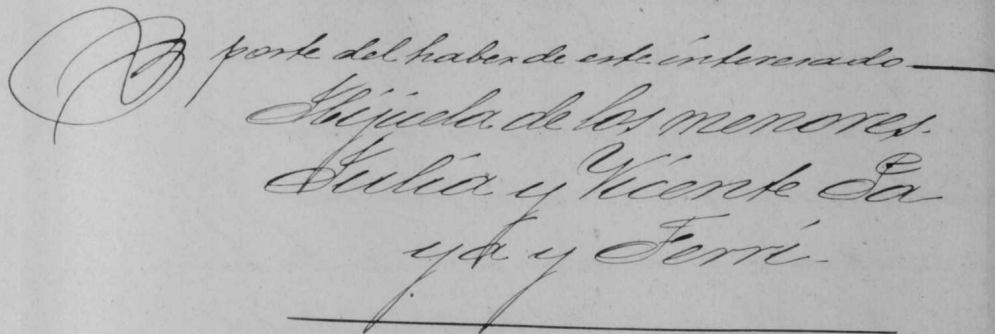 porte del haber de este interesado
Hijuela de los menores.
Julia y Vicente Pa
ya y Ferri.